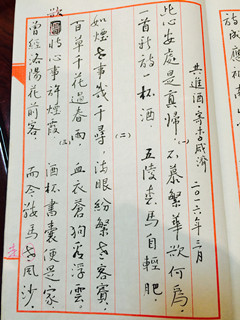 共進酒寄李咸濟 二〇一六年三月
此心安處是真歸 不慕繁華欲何為
一首新詩一杯酒 五陵裘馬自輕肥
(二)
如煙世事幾千尋 滿眼紛繁
百草千花過春雨 衣蒼狗看浮雲
(三)
時心事許煙霞 酒杯書囊便是家
曾經洛陽花前客 而今鞍馬風沙